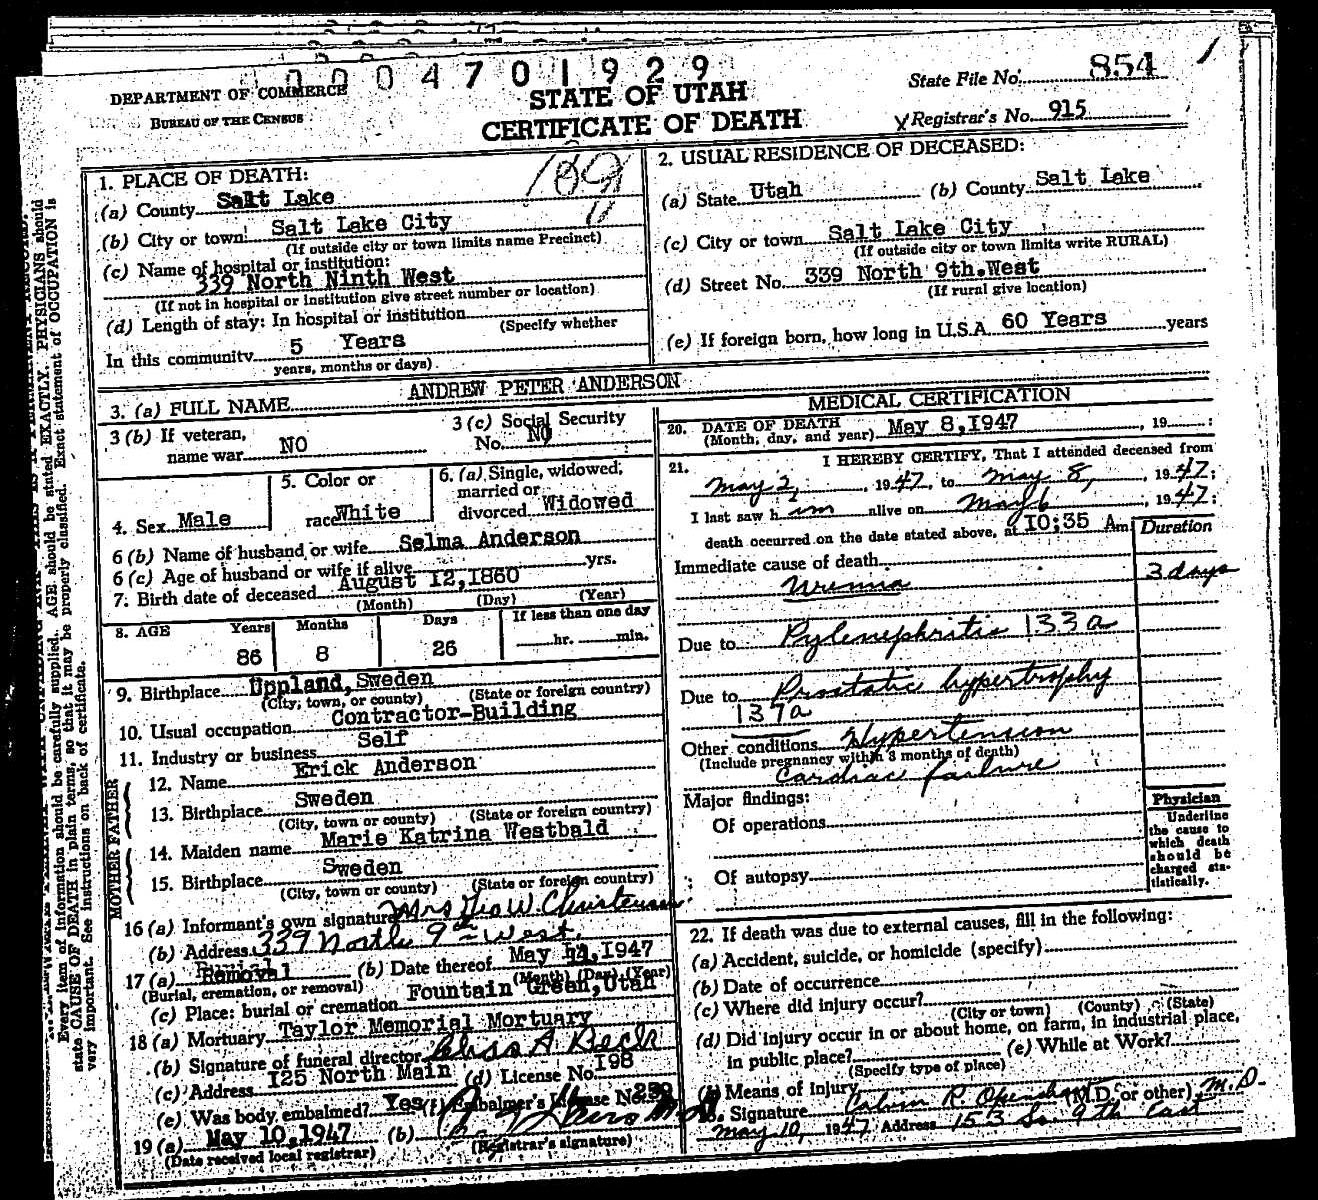 0004701929
DEPARTMENT OF COMMERCE
BUREAU OF THE CENSUS
STATE OF UTAH
CERTIFICATE OF DEATH
State File No. 854
Registrar's No. 915
1. PLACE OF DEATH:
(a) County Salt Lake
(b) City or town Salt Lake City
(If outside city or town limits name Precinct)
(c) Name of hospital or institution:
339 North Ninth West
(If not in hospital or institution give street number or location)
(d) Length of stay: In hospital or institution
(Specify whether
In this community 5 Years
years, months or days)
2. USUAL RESIDENCE OF DECEASED:
(a) State Utah (b) County Salt Lake
(c) City or town Salt Lake City
(If outside city or town limits write RURAL)
(d) Street No. 339 North 9th.West
(If rural give location)
(e) If foreign born, how long in U.S.A. 60 Years years
3. (a) FULL NAME ANDREW PETER ANDERSON
3 (b) If veteran,
name war NO
3 (c) Social Security
No. NO
4. Sex Male
5. Color or
race White
6. (a) Single, widowed,
married or
divorced Widowed
6 (b) Name of husband or wife Selma Anderson
6 (c) Age of husband or wife if alive yrs.
7. Birth date of deceased August 12,1860
(Month) (Day) (Year)
8. AGE Years Months Days If less than one day
86 8 26 hr. min.
9. Birthplace Uppland, Sweden
(City, town, or county) (State or foreign country)
10. Usual occupation Contractor-Building
11. Industry or business Self
FATHER
12. Name Erick Anderson
13. Birthplace Sweden
(City, town or county) (State or foreign country)
MOTHER
14. Maiden name Marie Katrina Westbald
15. Birthplace Sweden
(City, town or county) (State or foreign country)
16 (a) Informant's own signature Mrs Geo W. Christensen
(b) Address 339 North 9th West.
17 (a) Removal (b) Date thereof May 11,1947
(Burial, cremation, or removal) (Month) (Day) (Year)
(c) Place: burial or cremation Fountain Green,Utah
18 (a) Mortuary Taylor Memorial Mortuary
(b) Signature of funeral director
(c) Address 125 North Main (d) License No. 198
(e) Was body embalmed? Yes (f) Embalmer's License No. 239
19 (a) May 10,1947 (b)
(Date received local registrar) (Registrar's signature)
MEDICAL CERTIFICATION
20. DATE OF DEATH
(Month, day, and year) May 8,1947, 19
21. I HEREBY CERTIFY, That I attended deceased from
May 2, 1947, to May 8, 1947;
I last saw him alive on May 6, 1947;
death occurred on the date stated above, at 10:35 Am
Duration
Immediate cause of death
Uremia 3 days
Due to Pylenephritis 133a
Due to Prostatic hypertrophy
137a
Other conditions Hypertension
(Include pregnancy within 3 months of death)
Cardiac failure
Major findings:
Of operations
Of autopsy
Physician
Underline
the cause to
which death
should be
charged sta-
tistically.
22. If death was due to external causes, fill in the following:
(a) Accident, suicide, or homicide (specify)
(b) Date of occurrence
(c) Where did injury occur?
(City or town) (County) (State)
(d) Did injury occur in or about home, on farm, in industrial place,
in public place? (e) While at Work?
(Specify type of place)
(f) Means of Injury
Signature Calvin R. Openshaw (M.D. or other) M.D.
May 10, 1947 Address 153 So. 9th East
Every item of information should be carefully supplied. AGE should be stated EXACTLY. PHYSICIANS should
state CAUSE OF DEATH in plain terms, so that it may be properly classified. Exact statement of OCCUPATION is
very important. See instructions on back of certificate.